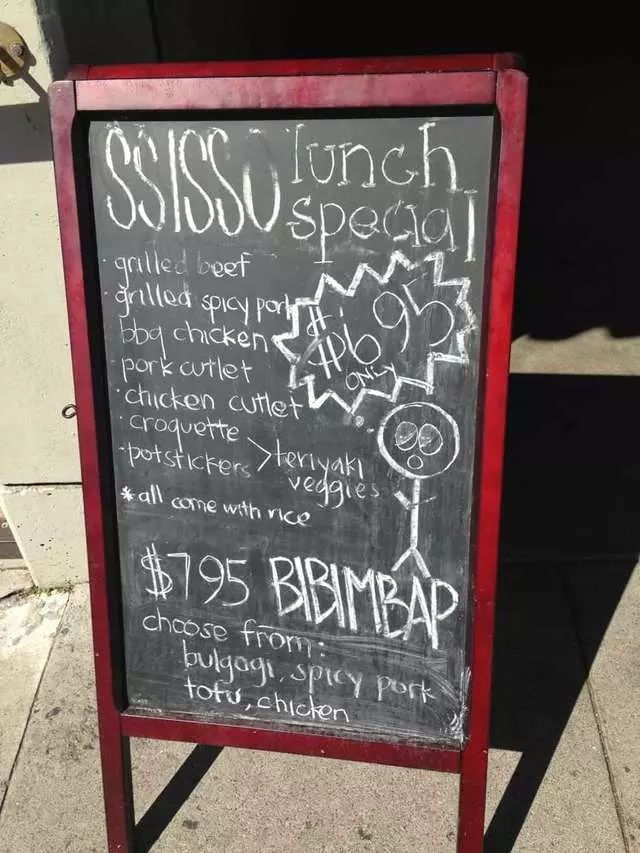 SSISSO lunch
special
· grilled beef
· grilled spicy pork
· bbq chicken
· pork cutlet
· chicken cutlet
· croquette
· potstickers > teriyaki
veggies
$6.95
only
* all come with rice
$7.95 BIBIMBAP
choose from:
bulgogi, spicy pork
tofu, chicken